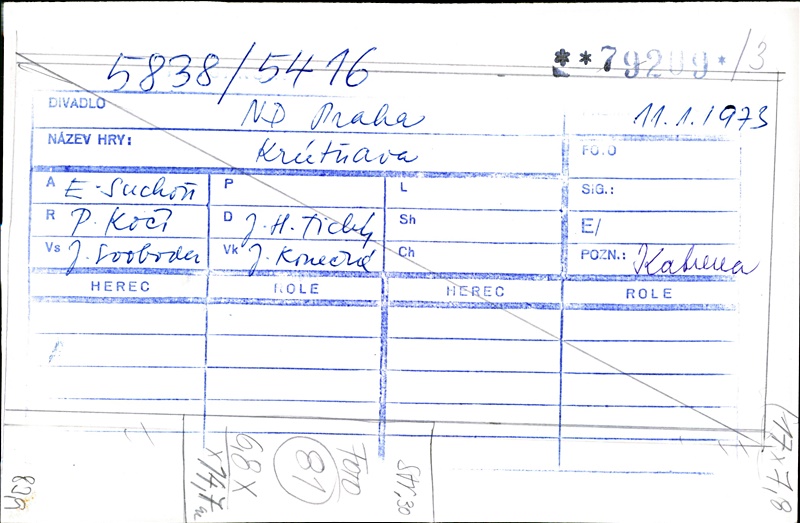 5838/5416 **79209* /3
DIVADLO ND Praha 11.1.1973
NÁZEV HRY: Krútňava FO.O
A E. Suchoň P L SIG.:
R P. Kočí D J. H. Tichý Sh E/
Vs J. Svoboda Vk J. Konečná Ch POZN.: Katrena
HEREC ROLE HEREC ROLE
(17x7,8
Str. 30
Foto
81
6,8 x
x 14,7